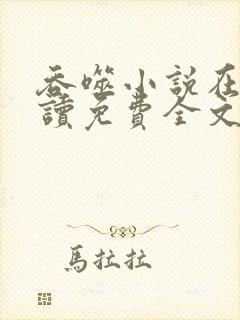 吞噬小说在
讀免費全文
馬拉拉